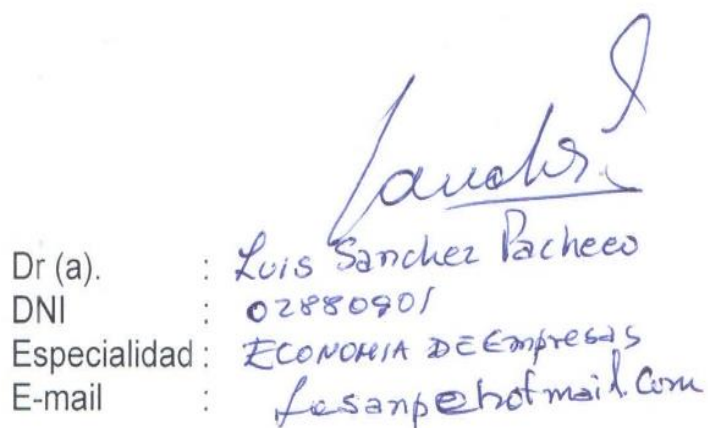 Dr (a). : Luis Sanchez Pacheco
DNI : 02880901
Especialidad : ECONOMIA DE Empresas
E-mail : @hotmail.com